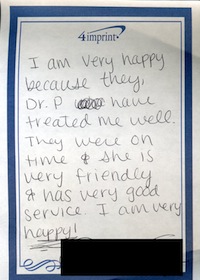 4imprint
I am very happy
because they,
Dr. P have
treated me well.
They were on
time & she is
very friendly
& has very good
service. I am very
happy!